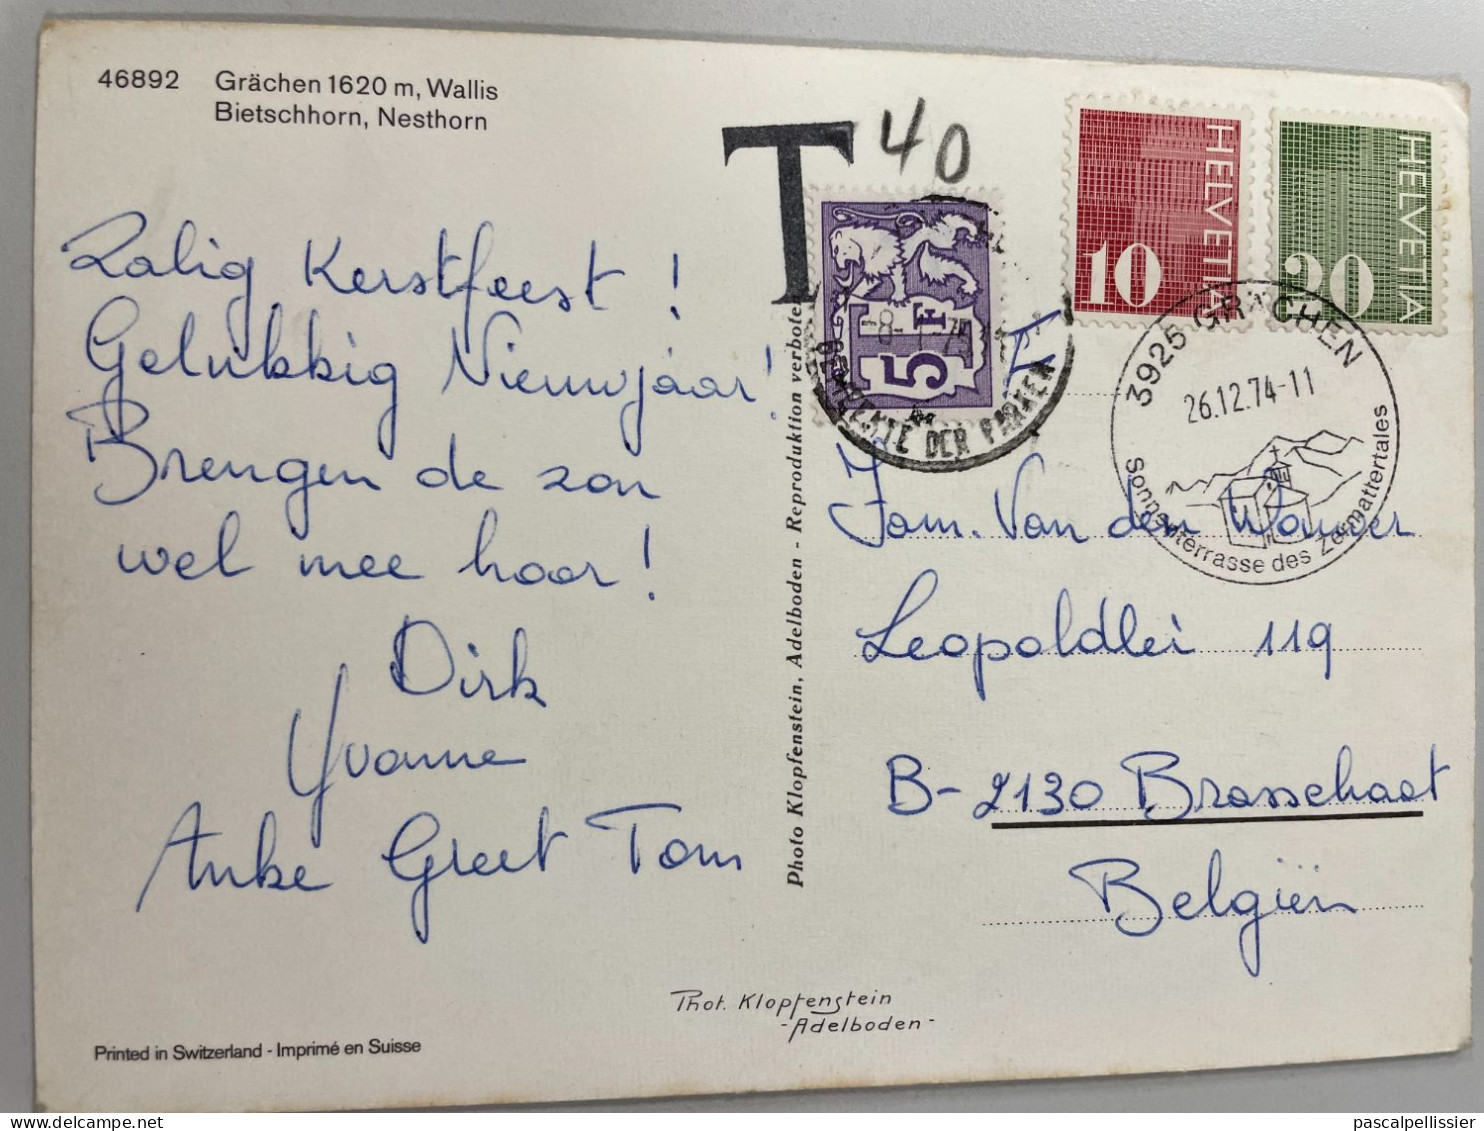 46892 Grächen 1620 m, Wallis
Bietschhorn, Nesthorn
Zalig Kerstfeest !
Gelukkig Nieuwjaar!
Brengen de zon
wel mee hoor!
Dirk
Yvonne
Anke Greet Tom
Printed in Switzerland - Imprimé en Suisse
Photo Klopfenstein, Adelboden - Reproduktion verboten
Phot. Klopfenstein
- Adelboden -
T 40
5 F
HELVETIA
10
HELVETIA
20
3925 GRÄCHEN
26.12.74-11
Sonnenterrasse des Zermattertales
Fam. Van den Wouwer
Leopoldlei 119
B-2130 Brasschaat
Belgiën
pascalpellissier